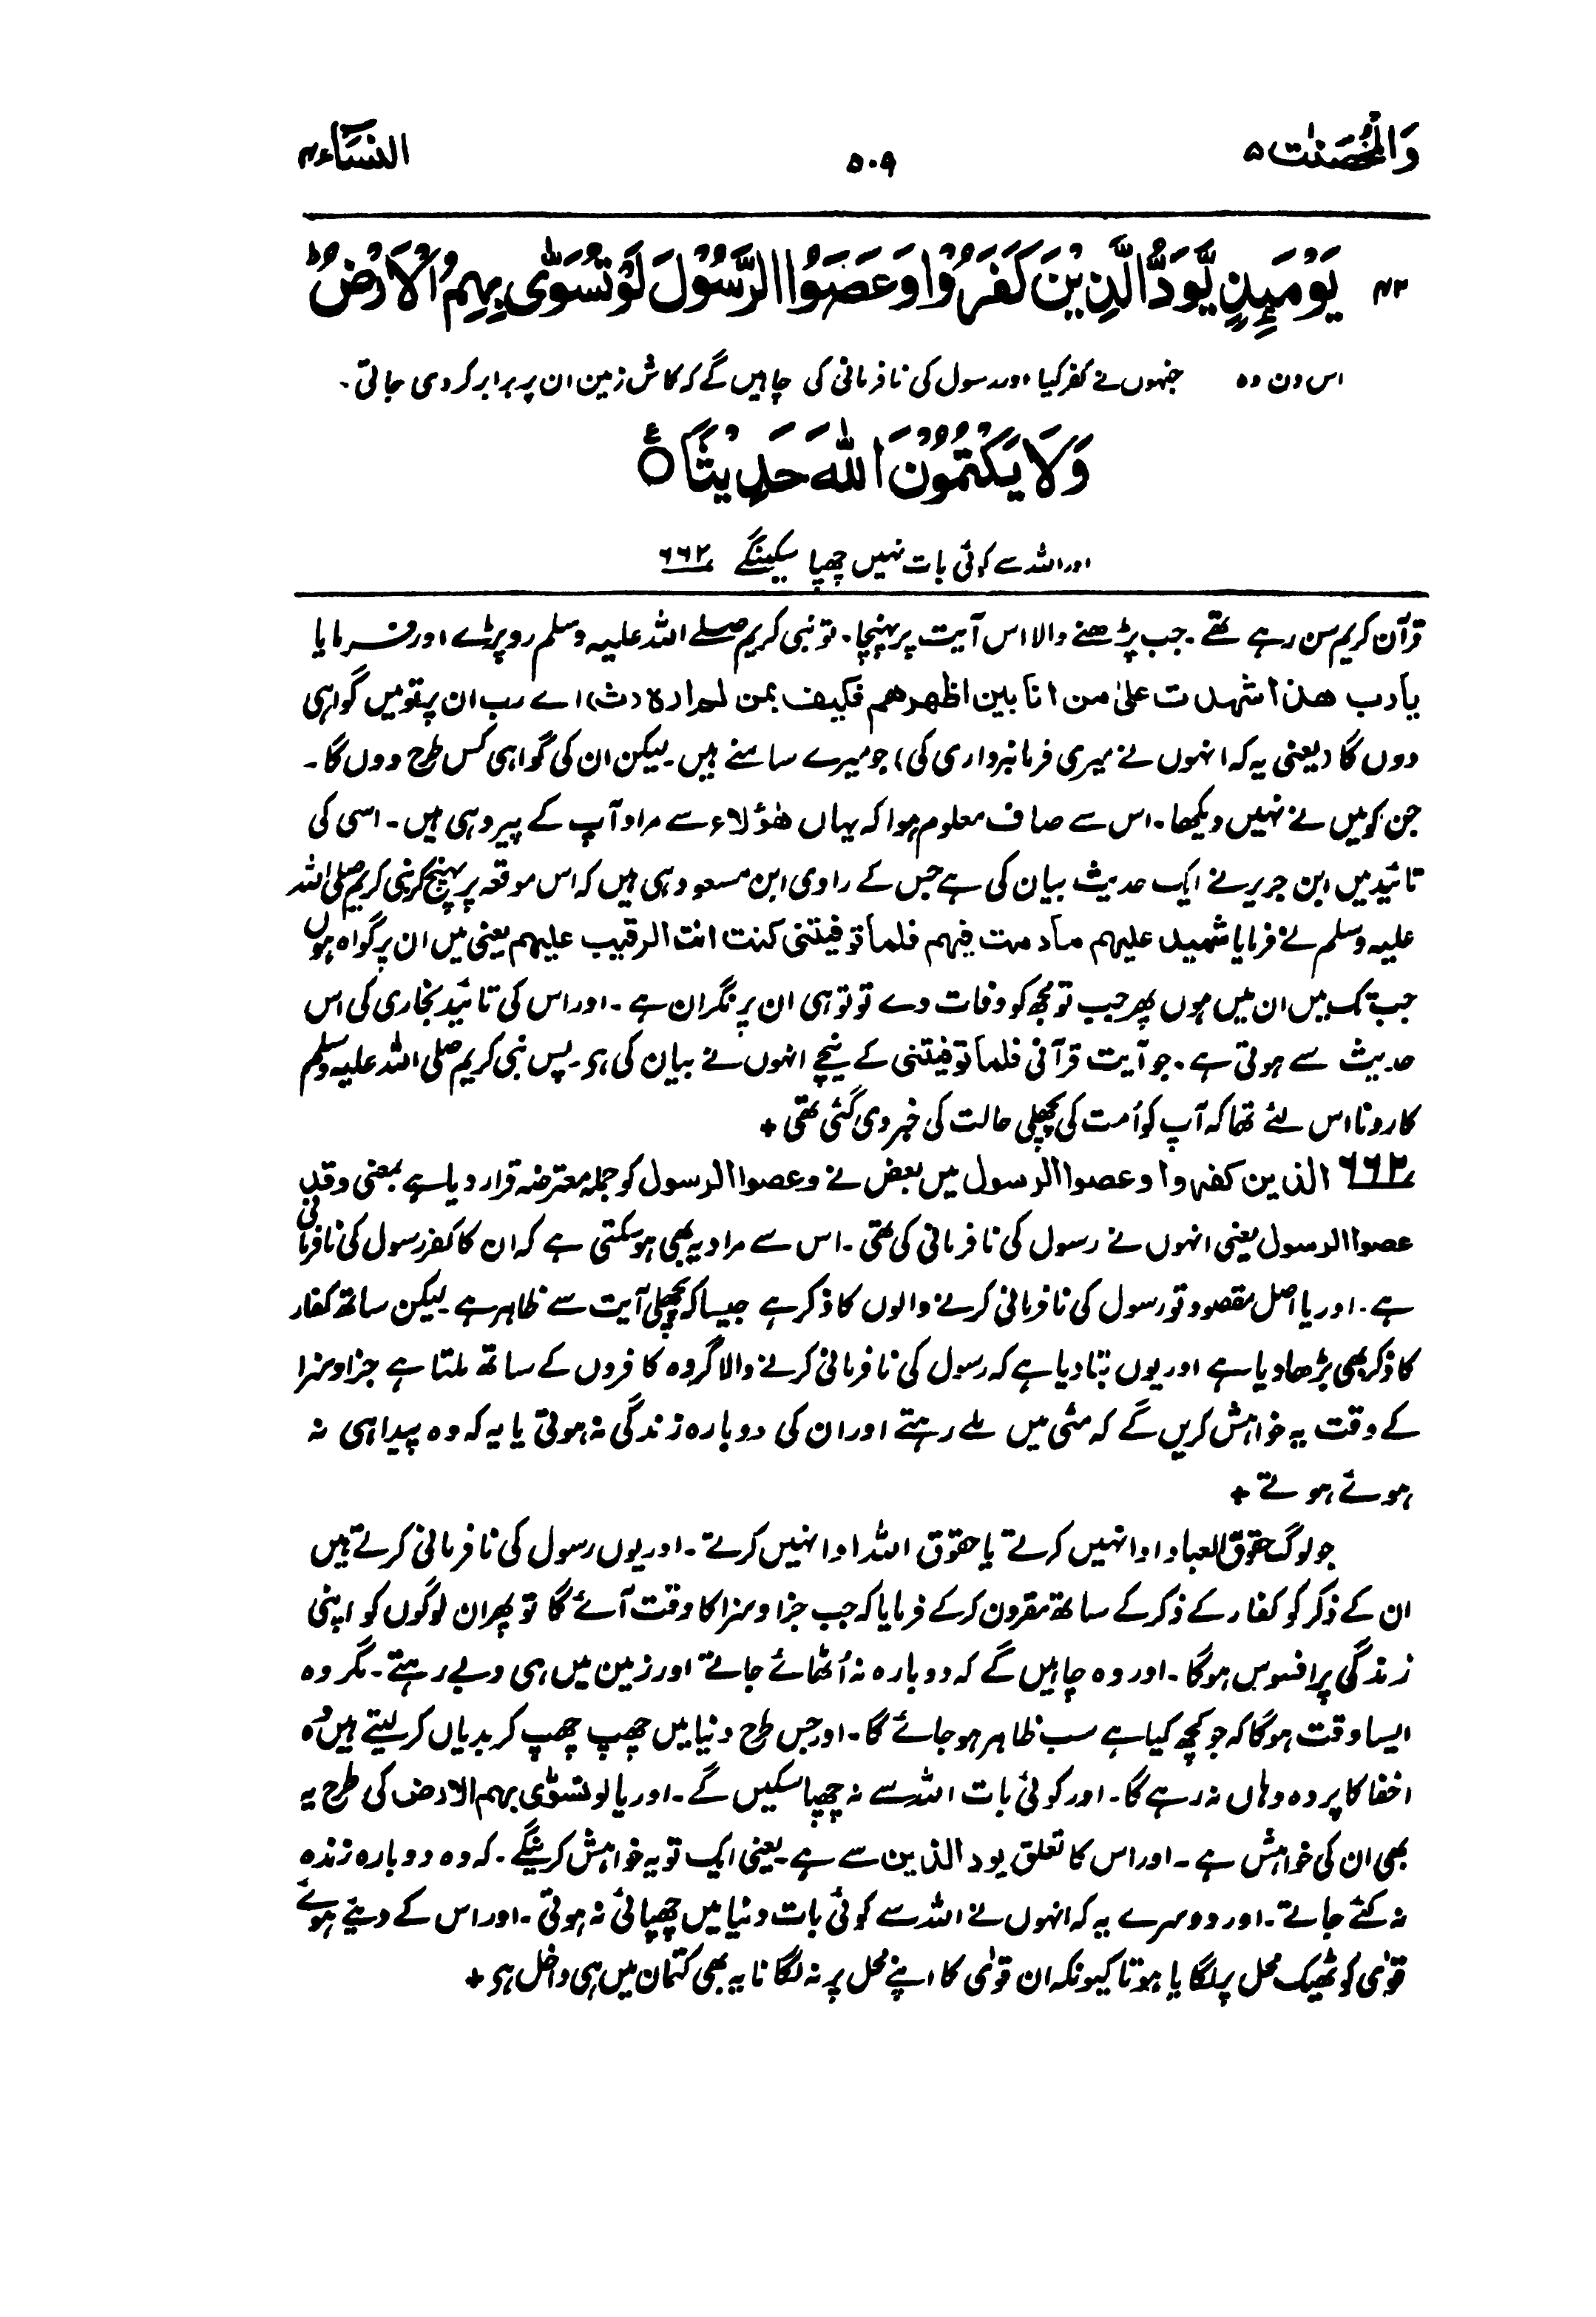 وَالْمُحْصَنٰت ۵
۵۰۹
النسآء ۴
۴۲ يَوْمَىِٕذٍ يَّوَدُّ الَّذِيْنَ كَفَرُوْا وَعَصَوُا الرَّسُوْلَ لَوْ تُسَوّٰى بِهِمُ الْاَرْضُ ؕ
اس دن وہ جنہوں نے کفر کیا اور رسول کی نافرمانی کی چاہیں گے کہ کاش زمین ان پر برابر کر دی جاتی۔
وَلَا يَكْتُمُوْنَ اللّٰهَ حَدِيْثًا ۝ ع
اور اللہ سے کوئی بات نہیں چھپا سکینگے ۶۶۲
قرآن کریم سن رہے تھے۔ جب پڑھنے والا اس آیت پر پہنچا۔ تو نبی کریم صلے اللہ علیہ وسلم رو پڑے اور فرمایا
یا رب ھذا شہدت علیٰ من انا بین اظھرھم فکیف بمن لم ارہ (ث) اے رب ان پر تو میں گواہی
دوں گا (یعنی یہ کہ انہوں نے میری فرمانبرداری کی) جو میرے سامنے ہیں۔ لیکن ان کی گواہی کس طرح دوں گا۔
جن کو میں نے نہیں دیکھا۔ اس سے صاف معلوم ہوا کہ یہاں ھٰؤلاء سے مراد آپ کے پیرو ہی ہیں۔ اسی کی
تائید میں ابن جریر نے ایک حدیث بیان کی ہے جس کے راوی ابن مسعود ہی ہیں کہ اس موقعہ پر پہنچ کر نبی کریم صلی اللہ
علیہ وسلم نے فرمایا شھید علیہم مادمت فیہم فلما توفیتنی کنت انت الرقیب علیہم یعنی میں ان پر گواہ ہوں
جب تک میں ان میں ہوں پھر جب تو مجھ کو وفات دے تو تو ہی ان پر نگران ہے۔ اور اس کی تائید بخاری کی اس
حدیث سے ہوتی ہے۔ جو آیت قرآنی فلما توفیتنی کے نیچے انہوں نے بیان کی ہو۔ پس نبی کریم صلی اللہ علیہ وسلم
کا رونا اس لئے تھا کہ آپ کو اُمت کی پچھلی حالت کی خبر دی گئی تھی +
۶۶۲ الذین کفروا وعصوا الرسول میں بعض نے وعصوا الرسول کو جملہ معترضہ قرار دیا ہے بمعنی وقد
عصوا الرسول یعنی انہوں نے رسول کی نافرمانی کی تھی۔ اس سے مراد یہ بھی ہو سکتی ہے کہ ان کا کفر رسول کی نافرمانی
ہے۔ اور یا اصل مقصود تو رسول کی نافرمانی کرنے والوں کا ذکر ہے جیسا کہ پچھلی آیت سے ظاہر ہے لیکن ساتھ کفار
کا ذکر بھی بڑھا دیا ہے اور یوں بتا دیا ہے کہ رسول کی نافرمانی کرنے والا گروہ کافروں کے ساتھ ملتا ہے جزا و سزا
کے وقت یہ خواہش کریں گے کہ مٹی میں ملے رہتے اور ان کی دوبارہ زندگی نہ ہوتی یا یہ کہ وہ پیدا ہی نہ
ہوئے ہوتے +
جو لوگ حقوق العباد ادا نہیں کرتے یا حقوق اللہ ادا نہیں کرتے۔ اور یوں رسول کی نافرمانی کرتے ہیں
ان کے ذکر کو کفار کے ذکر کے ساتھ مقرون کر کے فرمایا کہ جب جزا و سزا کا وقت آئے گا تو پھر ان لوگوں کو اپنی
زندگی پر افسوس ہوگا۔ اور وہ چاہیں گے کہ دوبارہ نہ اُٹھائے جاتے اور زمین میں ہی دبے رہتے۔ مگر وہ
ایسا وقت ہوگا کہ جو کچھ کیا ہے سب ظاہر ہو جائے گا۔ اور جس طرح دنیا میں چھپ چھپ کر بدیاں کر لیتے ہیں وُہ
اخفا کا پردہ وہاں نہ رہے گا۔ اور کوئی بات اللہ سے نہ چھپا سکیں گے۔ اور یا لو تسوّٰی بہم الارض کی طرح یہ
بھی ان کی خواہش ہے۔ اور اس کا تعلق یود الذین سے ہے۔ یعنی ایک تو یہ خواہش کرینگے۔ کہ وہ دوبارہ زندہ
نہ کئے جاتے۔ اور دوسرے یہ کہ انہوں نے اللہ سے کوئی بات دنیا میں چھپائی نہ ہوتی۔ اور اس کے دیئے ہوئے
قوٰی کو ٹھیک محل پر لگایا ہوتا کیونکہ ان قوٰی کا اپنے محل پر نہ لگانا یہ بھی کتمان میں ہی داخل ہو +